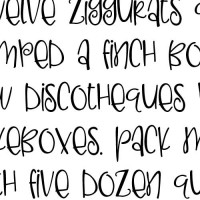 velve ziggurats q
mped a finch bo
w discotheques
keboxes. pack m
th five dozen qu